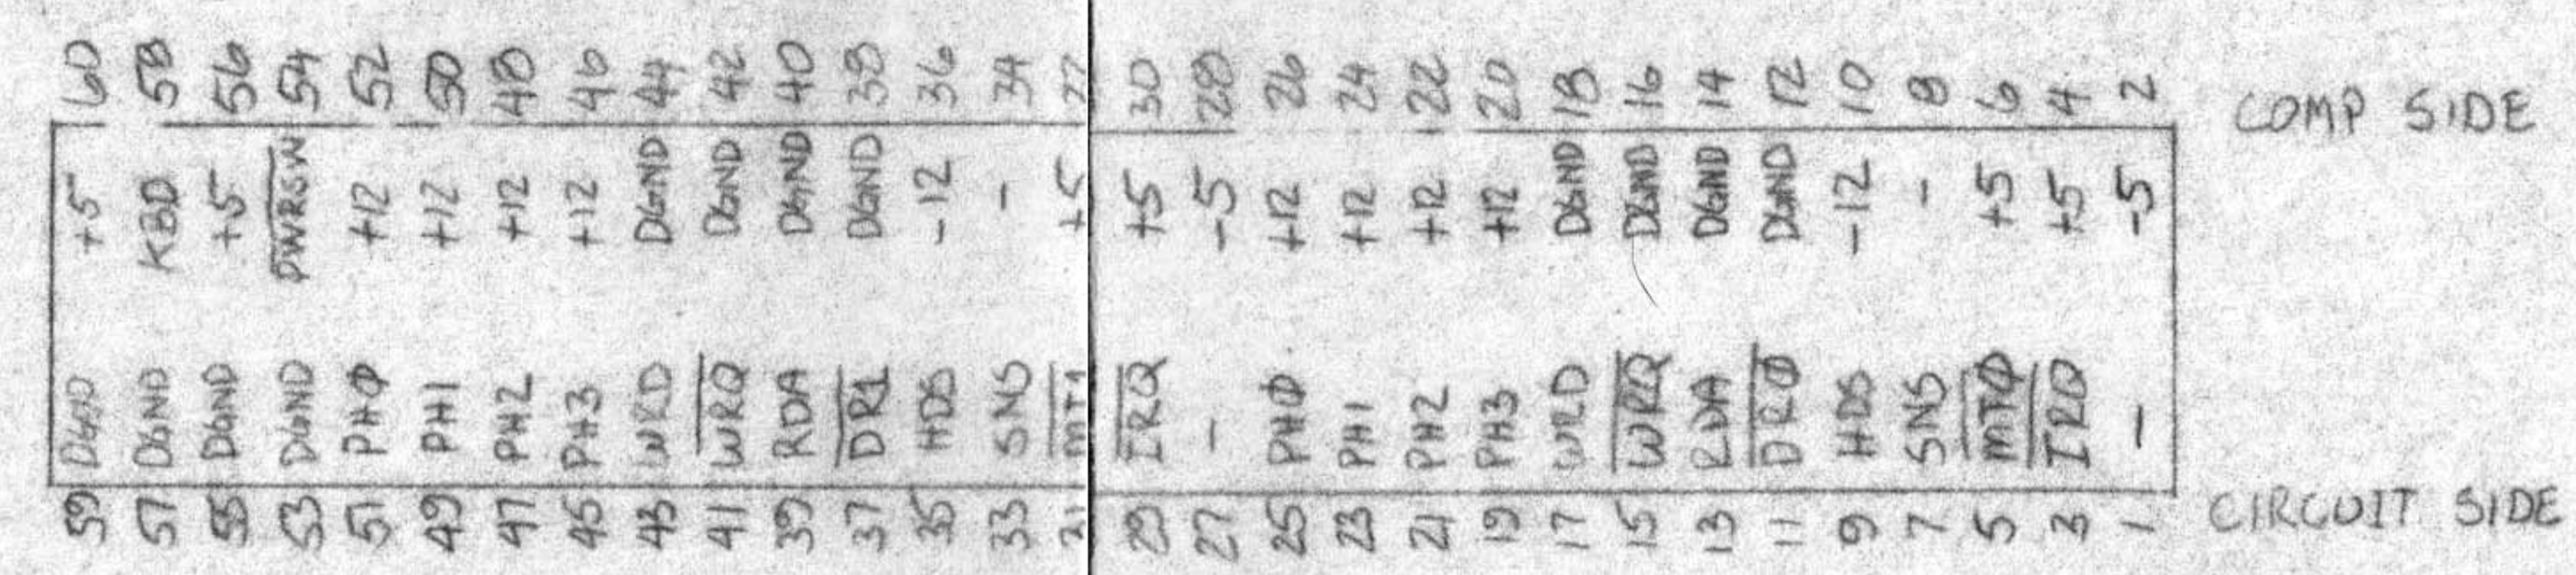 60 58 56 54 52 50 48 46 44 42 40 38 36 34 30 28 26 24 22 20 18 16 14 12 10 8 6 4 2 COMP SIDE
+5 KBD +5 PWRSW +12 +12 +12 +12 DGND DGND DGND DGND -12 - +5 +5 -5 +12 +12 +12 +12 DGND DGND DGND DGND -12 - +5 +5 -5
DGND DGND DGND DGND PHØ PH1 PH2 PH3 WRD WRQ RDA DR1 HDS SNS MT1 IRQ - PHØ PH1 PH2 PH3 WRD WRQ RDA DRØ HDS SNS MTØ IRQ -
59 57 55 53 51 49 47 45 43 41 39 37 35 33 29 27 25 23 21 19 17 15 13 11 9 7 5 3 1 CIRCUIT SIDE